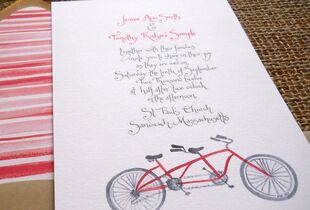 Jenna Ann Smith
&
Timothy Robert Sample
together with their families
invite you to share in their joy
as they are wed on
Saturday the tenth of September
Two Thousand twelve
at half after two o'clock
in the afternoon
St. Pauls Church
Sandwich, Massachusetts